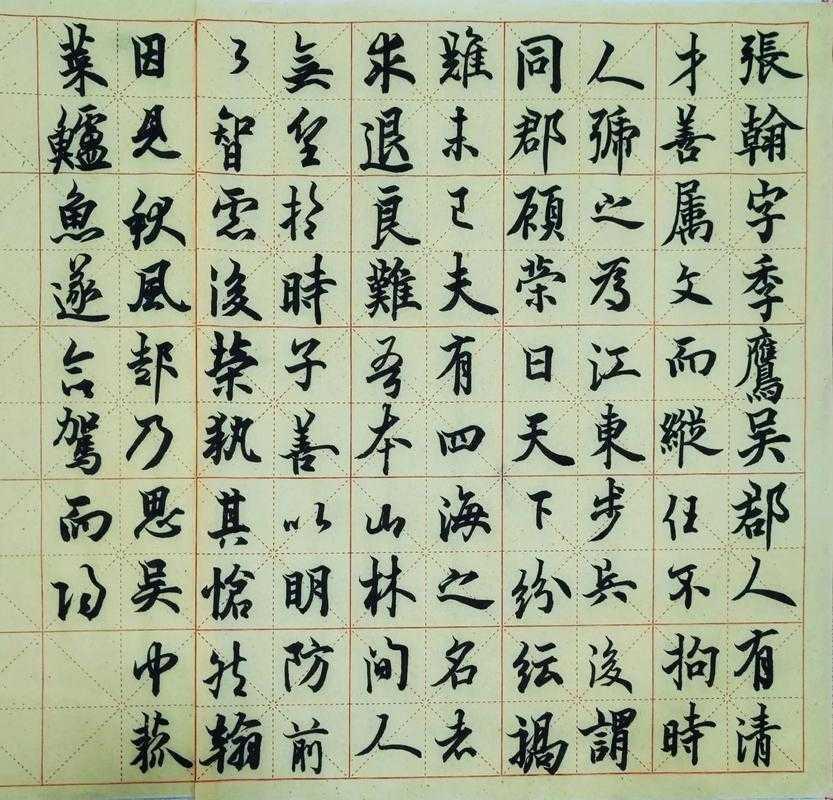 張翰字季鷹吳郡人有清
才善属文而縱任不拘時
人號之為江東步兵後謂
同郡顧榮曰天下紛紜禍
難未已夫有四海之名者
求退良難吾本山林間人
無望於時子善以明防前
以智慮後榮執其愴然翰
因見秋風起乃思吳中菰
菜鱸魚遂命駕而歸